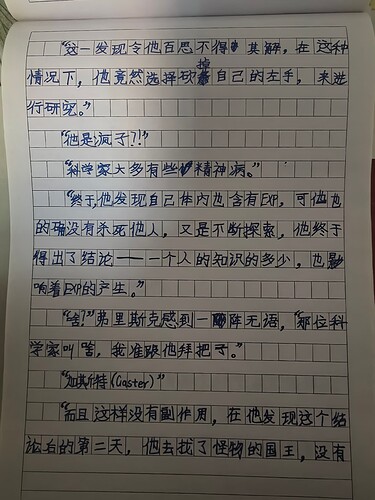 “这一发现令他百思不得其解，在这种
情况下，他竟然选择砍掉自己的左手，来进
行研究。”
“他是疯子?!”
“科学家大多有些精神病。”
“终于，他发现自己体内也含有EXP，可他也
的确没有杀死他人，又是不断探索，他终于
得出了结论——一个人的知识的多少，也影
响着EXP的产生。”
“啥?”弗里斯克感到一阵无语，“那位科
学家叫啥，我准跟他拜把子。”
“加斯特(Gaster)”
“而且这样没有副作用，在他发现这个结
论后的第二天，他去找了怪物的国王，没有